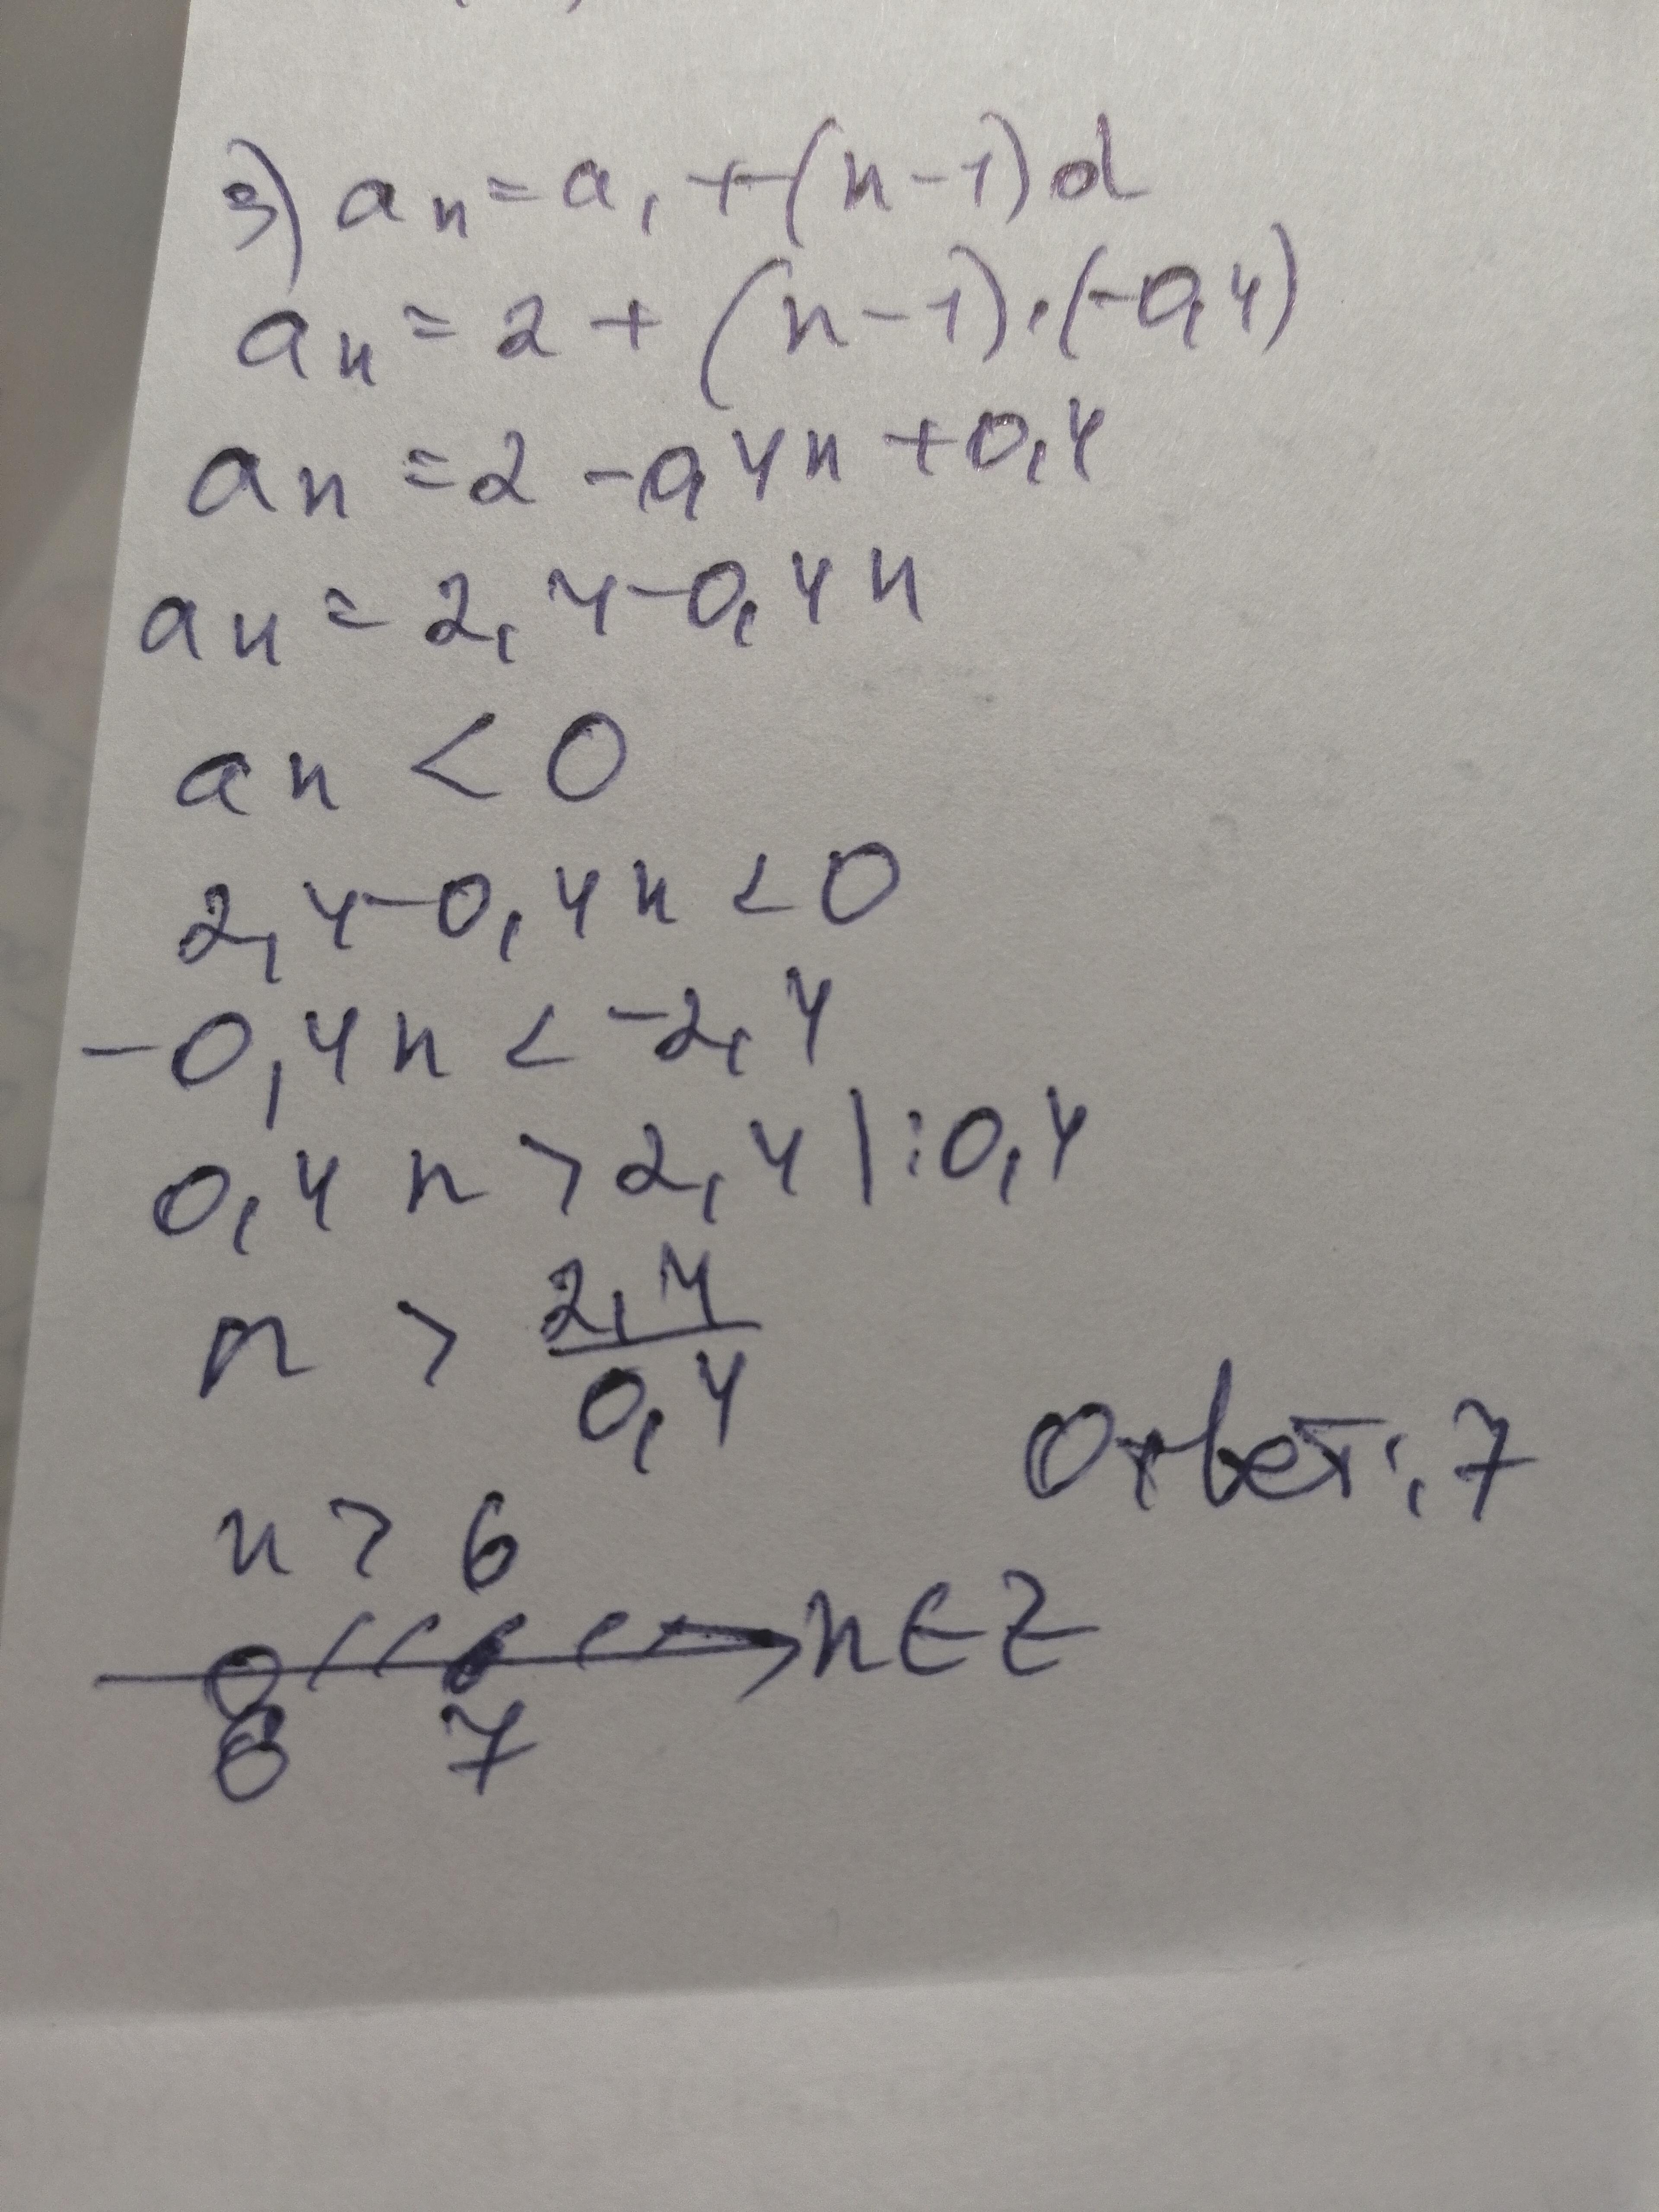 3) an = a1 + (n-1)d
an = 2 + (n-1)·(-0,4)
an = 2 - 0,4n + 0,4
an = 2,4 - 0,4n
an < 0
2,4 - 0,4n < 0
-0,4n < -2,4
0,4n > 2,4 | : 0,4
n > 2,4/0,4
Ответ: 7
n > 6
n ∈ Z
6 7